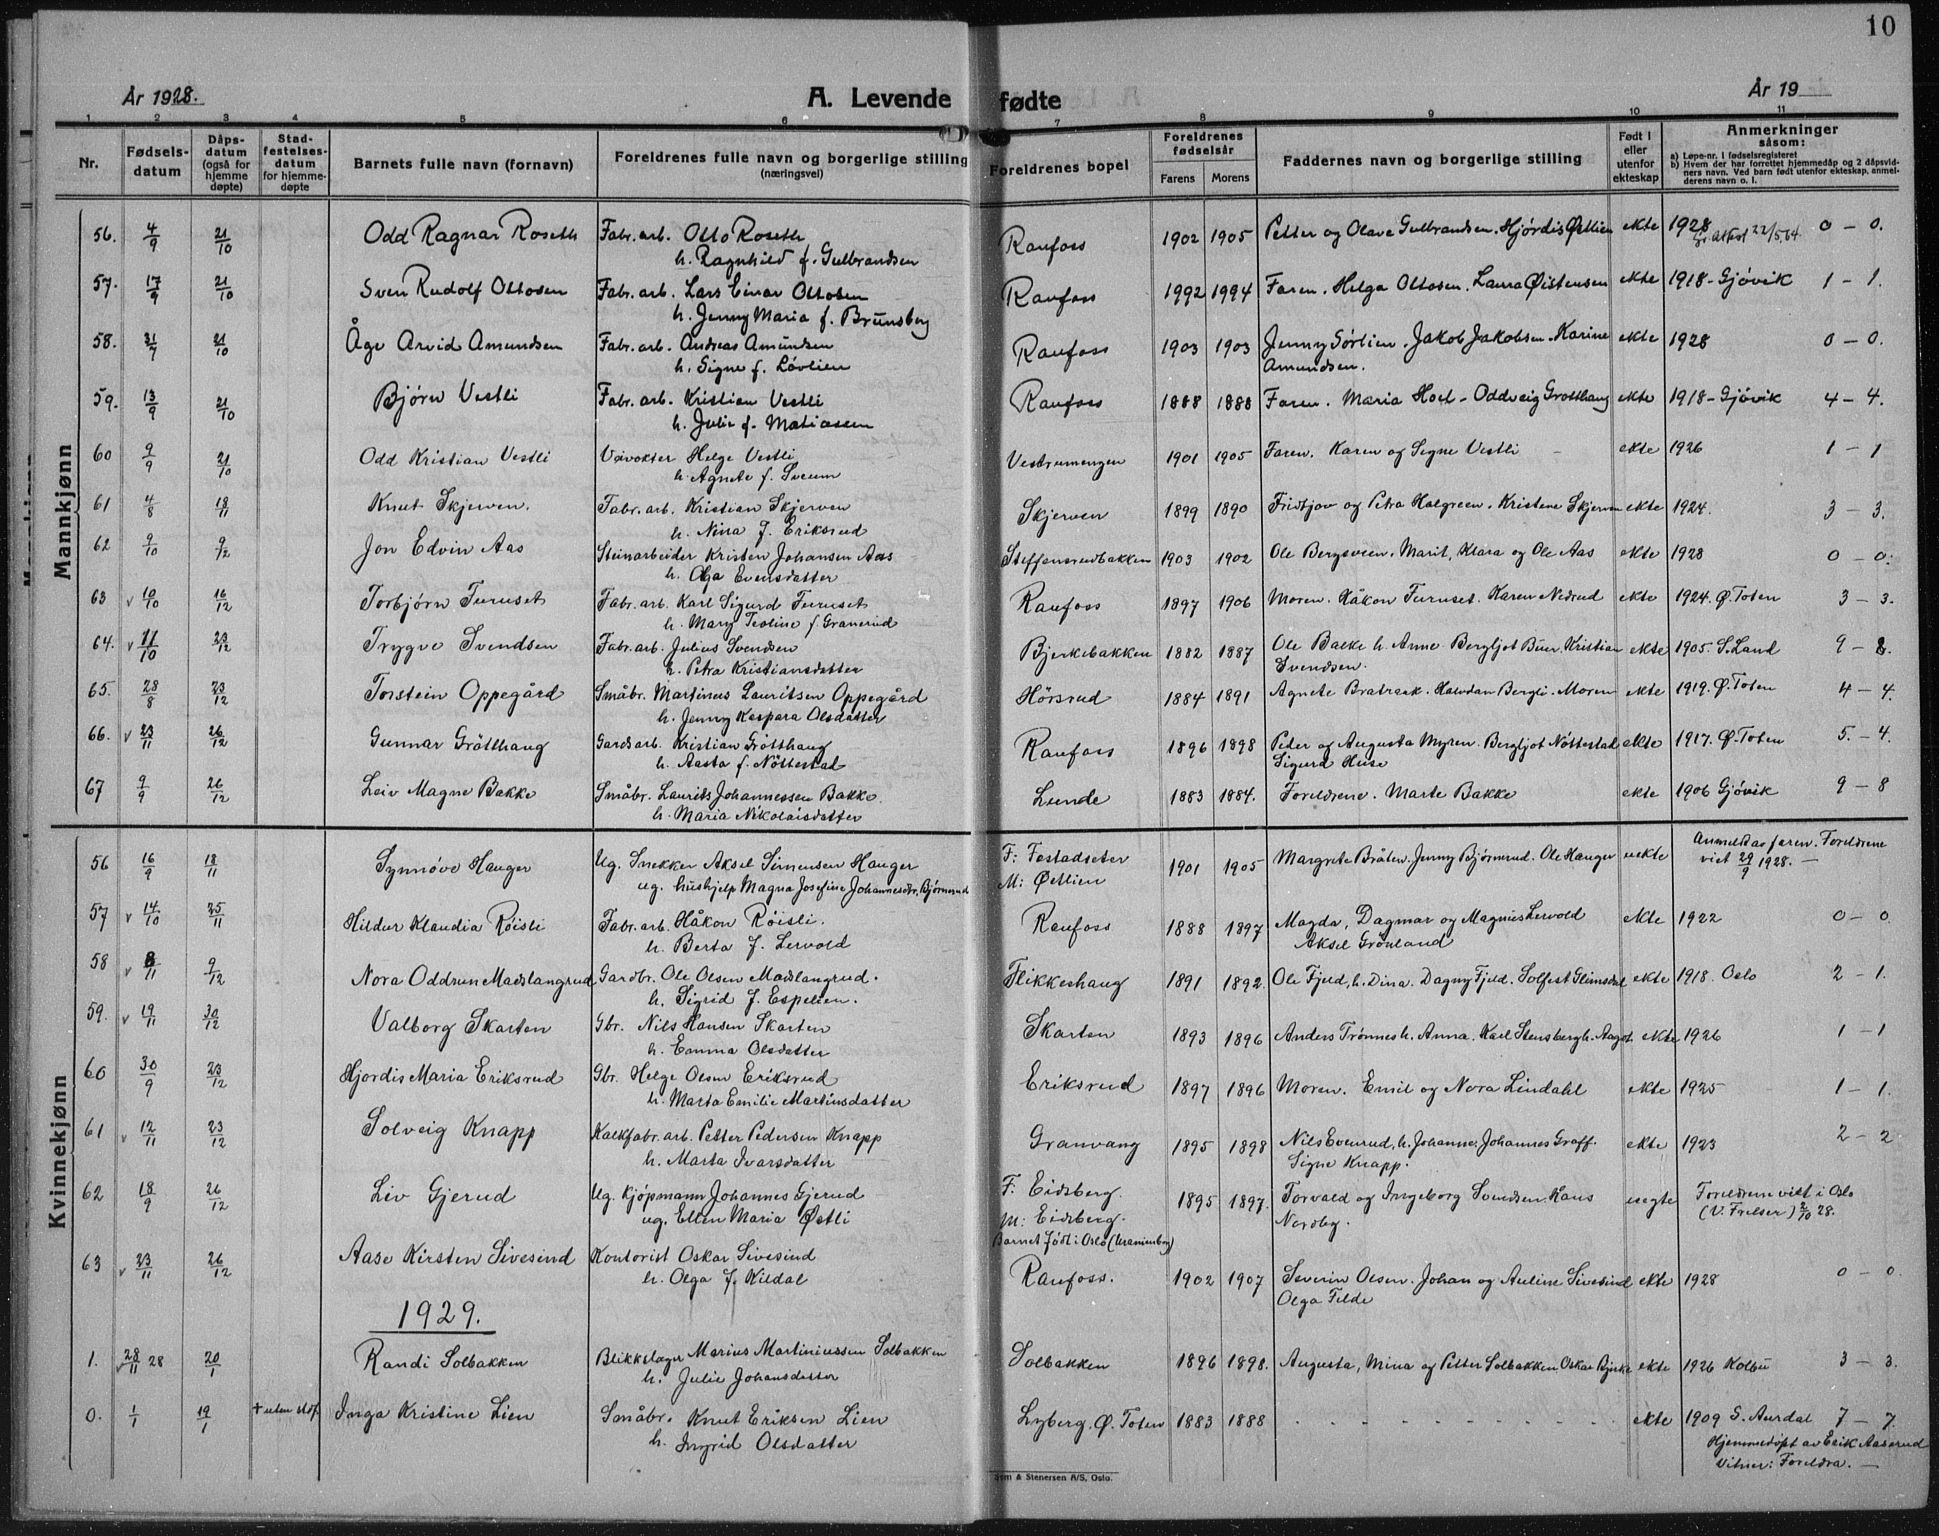 10
År 1928. A. Levende fødte År 19
1 2 3 4 5 6 7 8 9 10 11
Nr. Fødselsdatum Dåpsdatum (også for hjemmedøpte) Stadfestelsesdatum for hjemmedøpte Barnets fulle navn (fornavn) Foreldrenes fulle navn og borgerlige stilling (næringsvei) Foreldrenes bopel Foreldrenes fødselsår Farens Morens Faddernes navn og borgerlige stilling Født i eller utenfor ekteskap Anmerkninger såsom:
a) Løpe-nr. i fødselsregisteret
b) Hvem der har forrettet hjemmedåp og 2 dåpsvidners navn. Ved barn født utenfor ekteskap, anmelderens navn o. l.
Mankjønn
56. 4/9 21/10 Odd Ragnar Roseth Fabr. arb. Otto Roseth Raufoss 1902 1905 Petter og Olave Gulbrandsen. Hjørdis Østlien ekte 1928 0 – 0.
h. Ragnhild f. Gulbrandsen attest 22/5.64.
57. 17/9 21/10 Sven Rudolf Ottosen Fabr. arb. Lars Einar Ottosen Raufoss 1992 1994 Faren. Helga Ottosen. Laura Øistensen ekte 1918 – Gjøvik 1 – 1.
h. Jenny Maria f. Brunsberg
58. 31/7 21/10 Åge Arvid Amundsen Fabr. arb. Andreas Amundsen Raufoss 1903 1903 Jenny Sørlien. Jakob Jakobsen. Karine ekte 1928 0 – 0.
h. Signe f. Løvlien Amundsen.
59. 13/9 21/10 Bjørn Vestli Fabr. arb. Kristian Vestli Raufoss 1888 1888 Faren. Maria Hoel – Oddveig Grotthaug ekte 1918 – Gjøvik 4 – 4.
h. Julie f. Matiassen
60 9/9 21/10 Odd Kristian Vestli Veivokter Helge Vestli Vestrumengen 1901 1905 Faren. Karen og Signe Vestli ekte 1926 1 – 1
h. Agnete f. Sveum
61 4/8 18/11 Knut Skjerven. Fabr. arb. Kristian Skjerven Skjerven 1899 1890 Fridtjov og Petra Halgreen. Kristene Skjerven ekte 1924. 3 – 3.
h. Nina f. Eriksrud
62 9/10 9/12 Jon Edvin Aas Steinarbeider Kristen Johansen Aas Steffensrudbakken 1903 1902 Ole Bergsveen. Marit, Klara og Ole Aas ekte 1928 0 – 0.
h. Olga Evensdatter
63 v 10/10 16/12 Torbjørn Furuset Fabr. arb. Karl Sigurd Furuset Raufoss 1897 1906 Moren. Håkon Furuset. Karen Nedrud ekte 1924. Ø. Toten 3 – 3.
h. Mary Teoline f. Granerud
64. v 11/10 23/12 Trygve Svendsen Fabr. arb. Julius Svendsen Bjerkebakken 1882 1887 Ole Bakke h. Anne Bergljot Buer. Kristian ekte 1905. S. Land 9 – 8.
h. Petra Kristiansdatter Svendsen.
65. 28/8 23/12 Torstein Oppegård Småbr. Martinus Lauritsen Oppegård Hørsrud 1884 1891 Agnete Bratreak. Halvdan Bergli. Moren ekte 1919. Ø. Toten 4 – 4.
h. Jenny Kaspara Olsdatter
66. v 23/11 26/12 Gunnar Grøtthaug Gardsarb. Kristian Grøtthaug Raufoss 1896 1898 Peder og Augusta Myren. Bergljot Nøttestad ekte 1917. Ø. Toten 5. – 4.
h. Aasta f. Nøttestad Sigurd Huse
67 9/9 26/12 Leiv Magne Bakke Småbr. Laurits Johannessen Bakke. Lunde 1883 1884. Foreldrene. Marte Bakke ekte 1906 Gjøvik 9 – 8
h. Maria Nikolaisdatter
Kvinnekjønn
56 16/9 18/11 Synnøve Hauger Ug. Snekker Aksel Simensen Hauger F: Festadseter 1901 1905 Margrete Bråten. Jenny Bjørnerud. Ole Hauger uekte Anmeldt av faren. Foreldrene
ug. hushjelp Magna Josefine Johannesdtr. Bjørnerud M: Østlien viet 29/9 1928. –
57 v 14/10 25/11 Hildur Klaudia Røisli Fabr. arb. Håkon Røisli. Raufoss 1888 1897 Magda, Dagmar og Magnus Lervold ekte 1922 0 – 0
h. Berta f. Lervold Aksel Grønland
58 v 8/11 9/12 Nora Oddrun Madslangrud Gardbr. Ole Olsen Madslangrud. Flikkeshaug 1891 1892. Ole Fjeld, h. Dina. Dagny Fjeld. Solfest Glimsdal ekte 1918. Oslo 2 – 1.
h. Sigrid f. Espelien.
59. v 19/11 30/12 Valborg Skarten Gbr. Nils Hansen Skarten Skarten 1893 1896 Anders Trønnes h. Anna. Karl Stensberg h. Aagot ekte 1926 1 – 1
h. Emma Olsdatter
60 30/9 23/12 Hjordis Maria Eriksrud Gbr. Helge Olsen Eriksrud Eriksrud 1897 1896 Moren. Emil og Nora Lindahl ekte 1925 1 – 1.
h. Marta Emilie Martinsdatter
61 v 12/11 23/12 Solveig Knapp Kalkfabr. arb. Petter Pedersen Knapp Granvang 1895 1898 Nils Evenrud, h. Johanne. Johannes Graff. ekte 1923 2 – 2
h. Marta Ivarsdatter Signe Knapp.
62 18/9 26/12 Liv Gjerud Ug. Kjøpmann Johannes Gjerud F: Eidsberg. 1895 1897. Torvald og Ingeborg Svendsen. Hans uegte Foreldrene viet i Oslo
ug. Ellen Maria Østli M: Eidsberg. Nordby. (V. Frelser) 2/10 28.
Barnet født i Oslo (Uranienborg)
63 v 23/11 26/12 Aase Kirsten Sivesind Kontorist Oskar Sivesind Raufoss. 1902 1907 Severin Olsen. Johan og Auline Sivesind ekte 1928 0 – 0.
h. Olga f. Kildal Olga Filde
1929.
1. v 28/11 28 20/1 Randi Solbakken Blikkslager Marius Martiniussen Solbakken Solbakken 1896 1898. Augusta, Mina og Petter Solbakken. Oskar Bjerke ekte 1926 Kolbu 3 – 3.
h. Julie Johansdatter
0. 1/1 19/1 + uten stadf. Inga Kristine Lien Småbr. Knut Eriksen Lien Lyberg. Ø. Toten 1883 1888 ekte 1909 S. Aurdal 7 – 7.
h. Ingrid Olsdatter Hjemmedøpt av Erik Aaserud
Vitner: Foreldra. –
Sem & Stenersen A/S, Oslo.